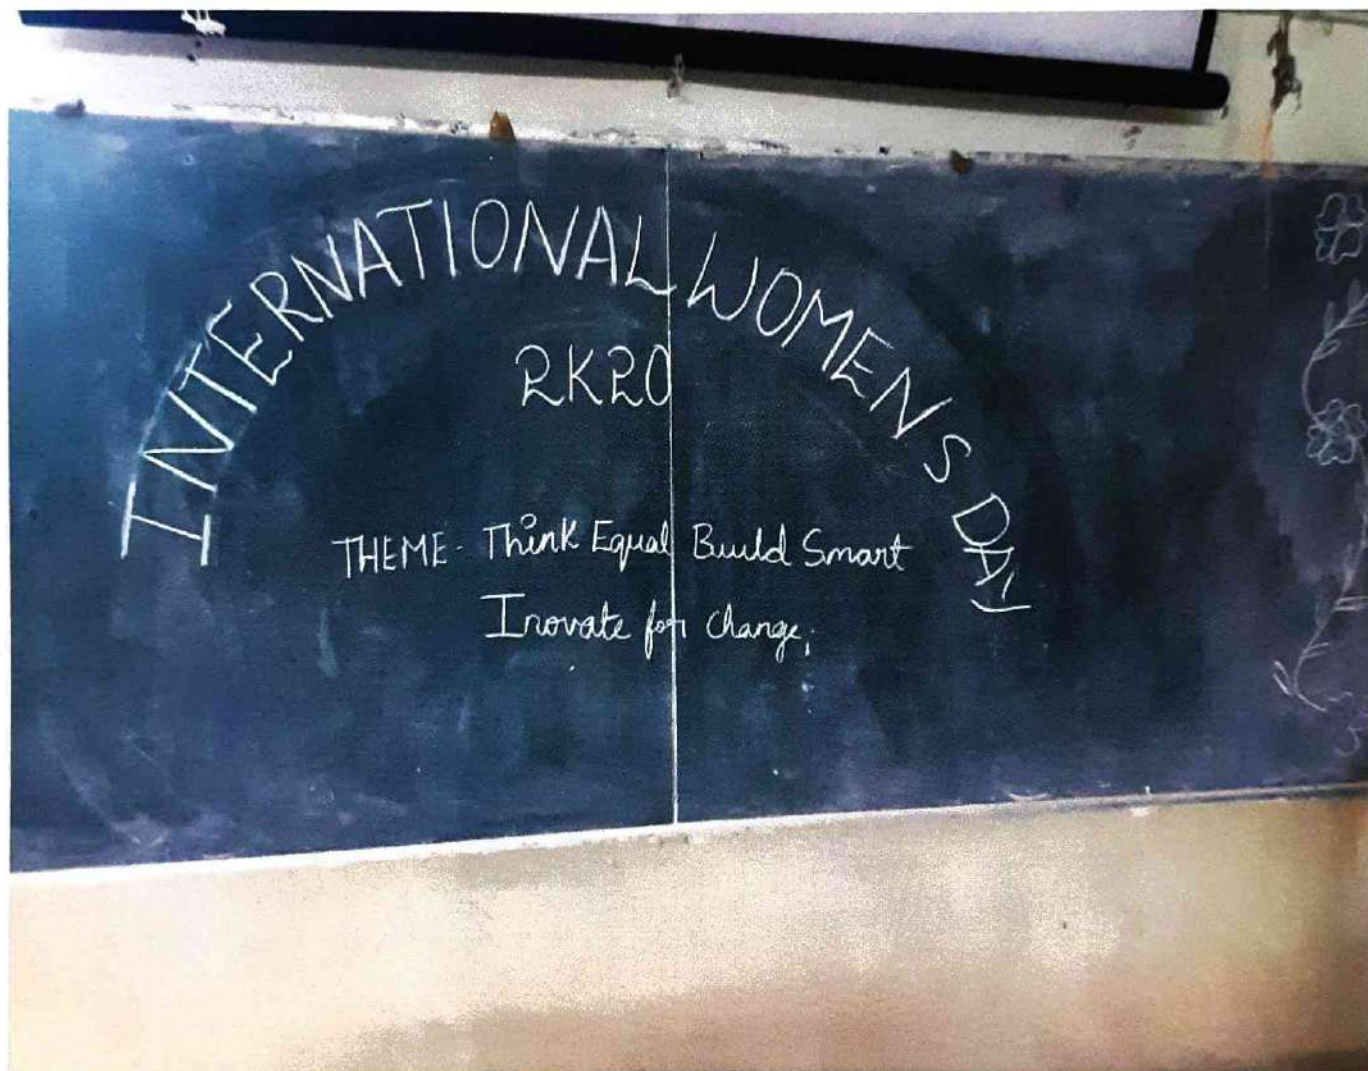 INTERNATIONAL WOMENS DAY
2K20
THEME - Think Equal Build Smart
Inovate for change;